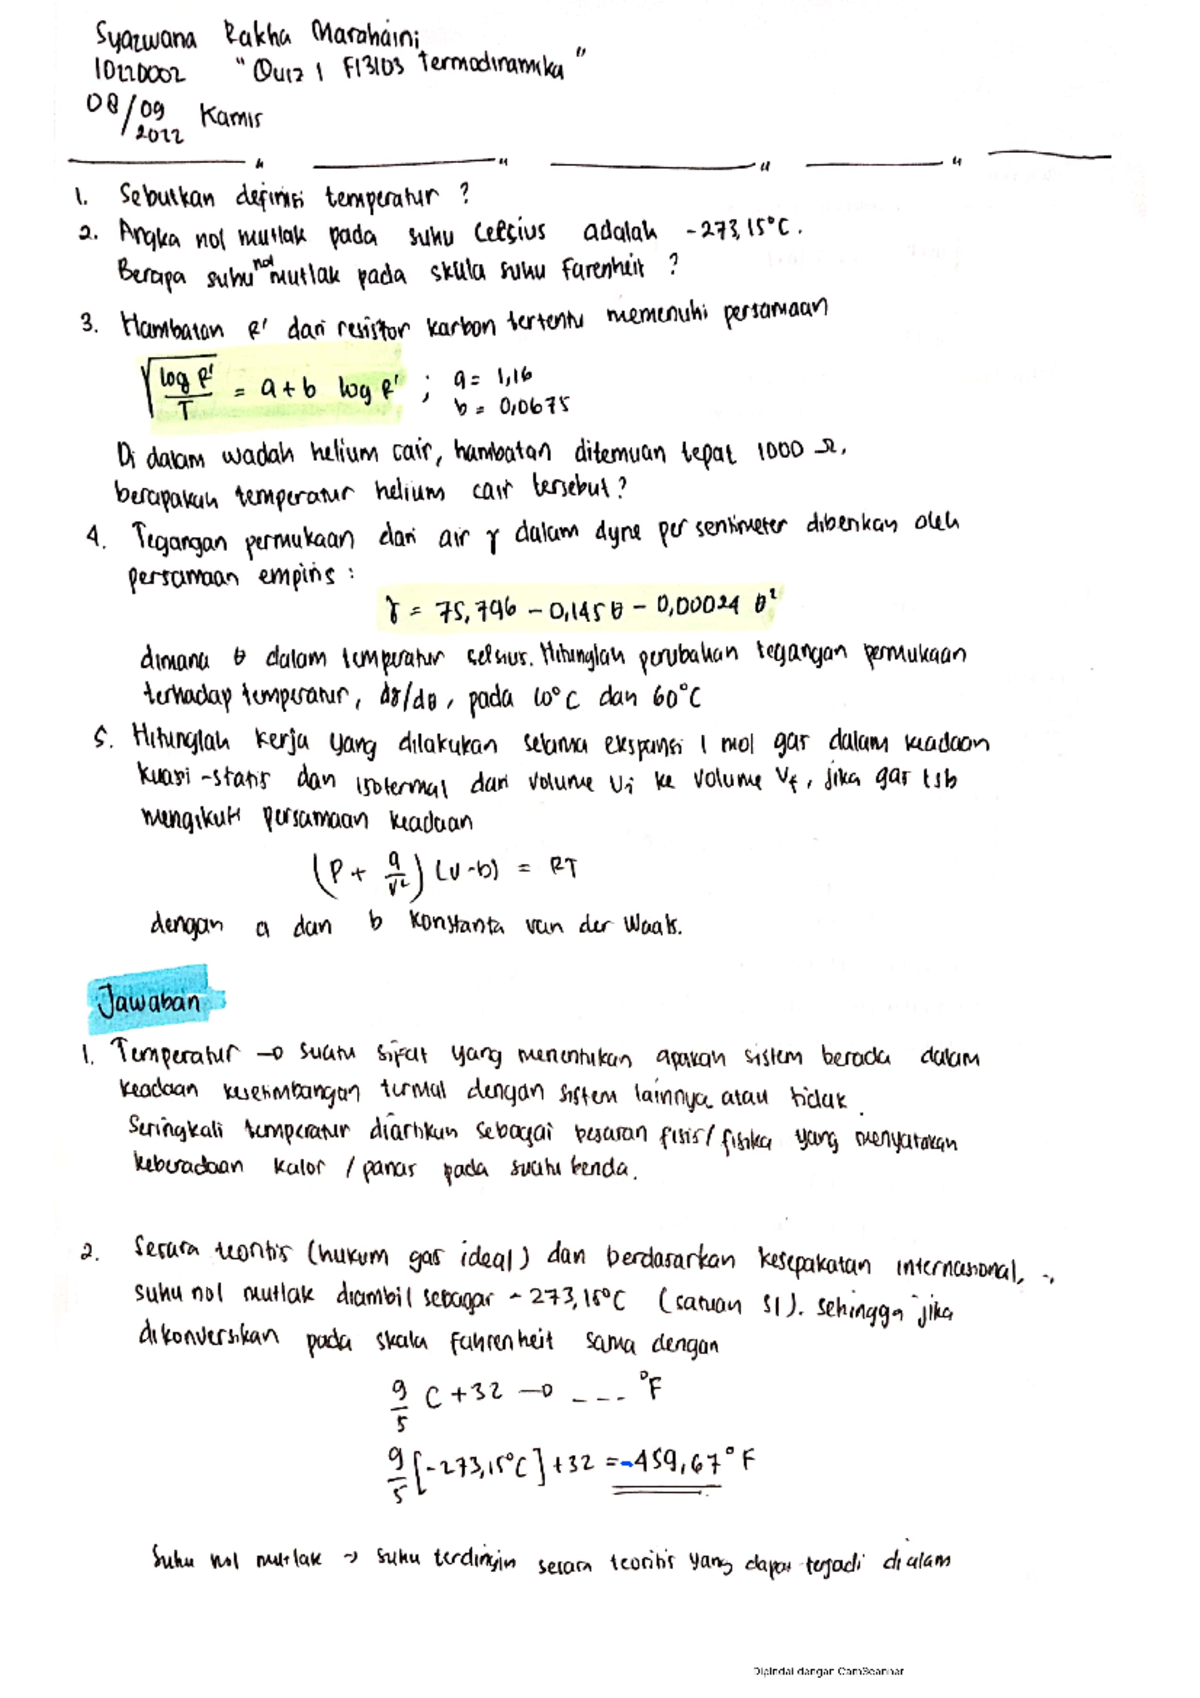 Syazwana Rakha Marahaini
10220002 "Quiz 1 FI3103 Termodinamika"
08/09 Kamis
2022
1. Sebutkan definisi temperatur ?
2. Angka nol mutlak pada suhu Celsius adalah -273,15°C.
Berapa suhu nol mutlak pada skala suhu Farenheit ?
3. Hambatan R' dari resistor karbon tertentu memenuhi persamaan
√(log R'/T) = a + b log R' ; a = 1,16
b = 0,0675
Di dalam wadah helium cair, hambatan ditemuan tepat 1000 Ω,
berapakah temperatur helium cair tersebut?
4. Tegangan permukaan dari air γ dalam dyne per sentimeter diberikan oleh
persamaan empiris :
γ = 75,796 - 0,145 θ - 0,00024 θ²
dimana θ dalam temperatur celsius. Hitunglah perubahan tegangan permukaan
terhadap temperatur, dγ/dθ, pada 10°C dan 60°C
5. Hitunglah kerja yang dilakukan selama ekspansi 1 mol gas dalam keadaan
kuasi-statis dan isotermal dari volume Vi ke volume Vf, jika gas tsb
mengikuti persamaan keadaan
(P + a/v²) (v-b) = RT
dengan a dan b konstanta van der Waals.
Jawaban
1. Temperatur → suatu sifat yang menentukan apakah sistem berada dalam
keadaan kesetimbangan termal dengan sistem lainnya atau tidak.
Seringkali temperatur diartikan sebagai besaran fisis/fisika yang menyatakan
keberadaan kalor / panas pada suatu benda.
2. Secara teoritis (hukum gas ideal) dan berdasarkan kesepakatan internasional,
suhu nol mutlak diambil sebagai - 273,15°C (satuan SI). Sehingga jika
dikonversikan pada skala fahrenheit sama dengan
9/5 C + 32 → ---- °F
9/5 [-273,15°C] + 32 = -459,67°F
Suhu nol mutlak → suhu terdingin secara teoritis yang dapat terjadi di alam
Dipindai dengan CamScanner